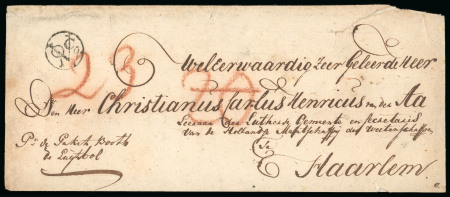 23 7A
WelEerwaardig Zeer Geleerde Heer
Den Heer Christianus Carlus Henricus van der Aa
Leeraar der Luthersche Gemeente en Secretaris
van de Hollandse Maatschappij der Wetenschappen
Te
Haarlem
Pr. de Paket Booth